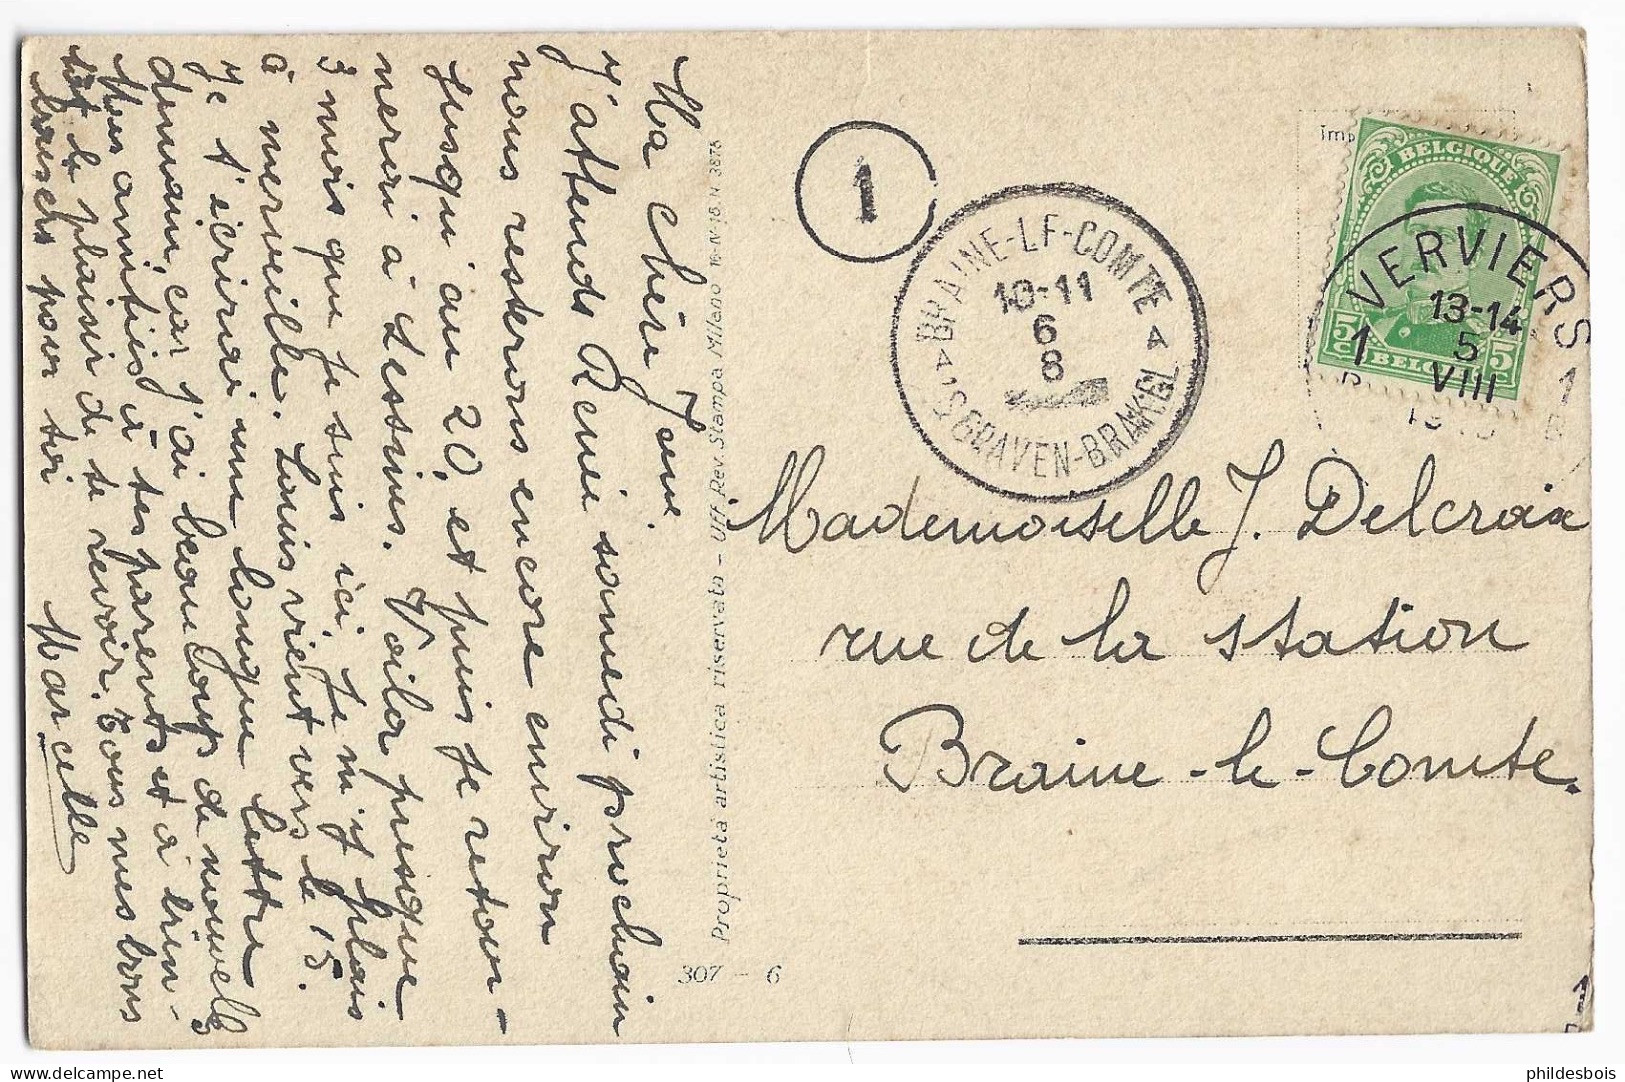 Ma chère Jane
J'attends Renée samedi prochain
nous resterons encore environ
jusqu'au 20, et puis je retour-
nerai à Lessines. Voilà presque
3 mois que je suis ici, je m'y plais
à merveille. Louis vient vers le 15.
Je t'écrirai une longue lettre
demain, car j'ai beaucoup de nouvelles
Mes amitiés à tes parents et à bien-
tôt le plaisir de te revoir. Tous mes bons
baisers pour toi
Marcelle
Proprietà artistica riservata - Uff. Rev. Stampa Milano 16-IV-18.N 3876
307 - 6
1
BRAINE-LE-COMTE
10-11
6
8
'S GRAVEN-BRAKEL
Imp
BELGIQUE
5c 5c
BELGIË
VERVIERS
13-14
1 5 1
VIII
Mademoiselle J. Delcroix
rue de la station
Braine-le-Comte.
1
philDesbois